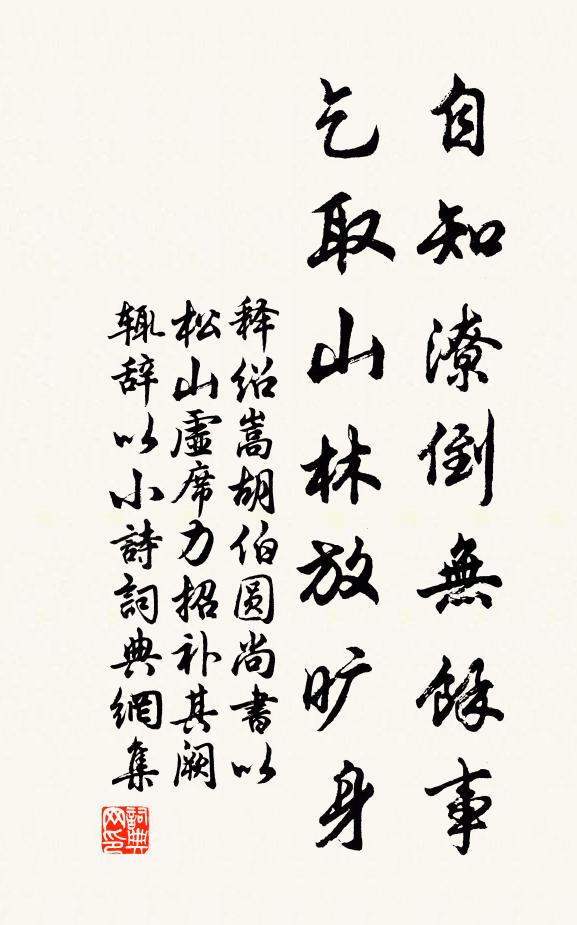 自知潦倒無餘事
乞取山林放旷身
释绍嵩胡伯圆尚書以
松山虚席力招补其阙
辄辞以小詩詞典網集
詞典
网印